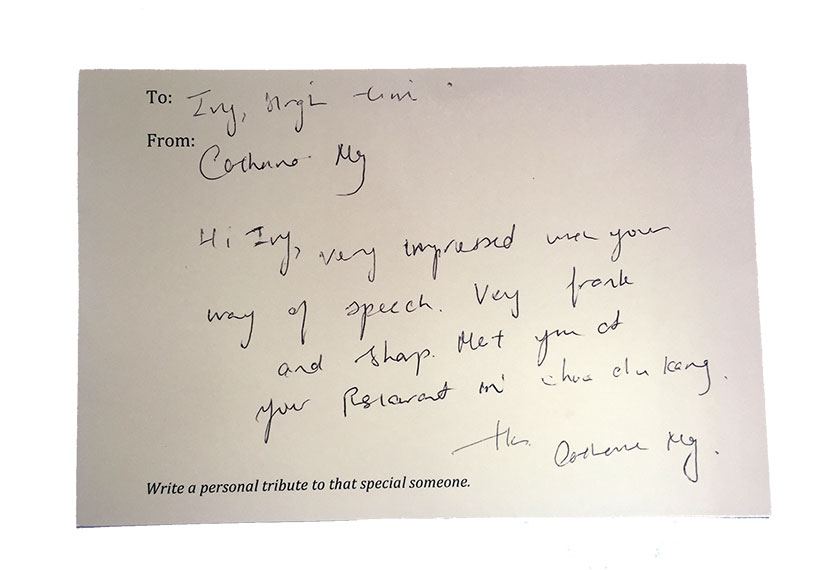 To: Ivy,
From:
Catherine Ng
Hi Ivy, very impressed with your
way of speech. Very frank
and sharp. Met you at
your Restaurant in choa chu kang.
Tks. Catherine Ng.
Write a personal tribute to that special someone.